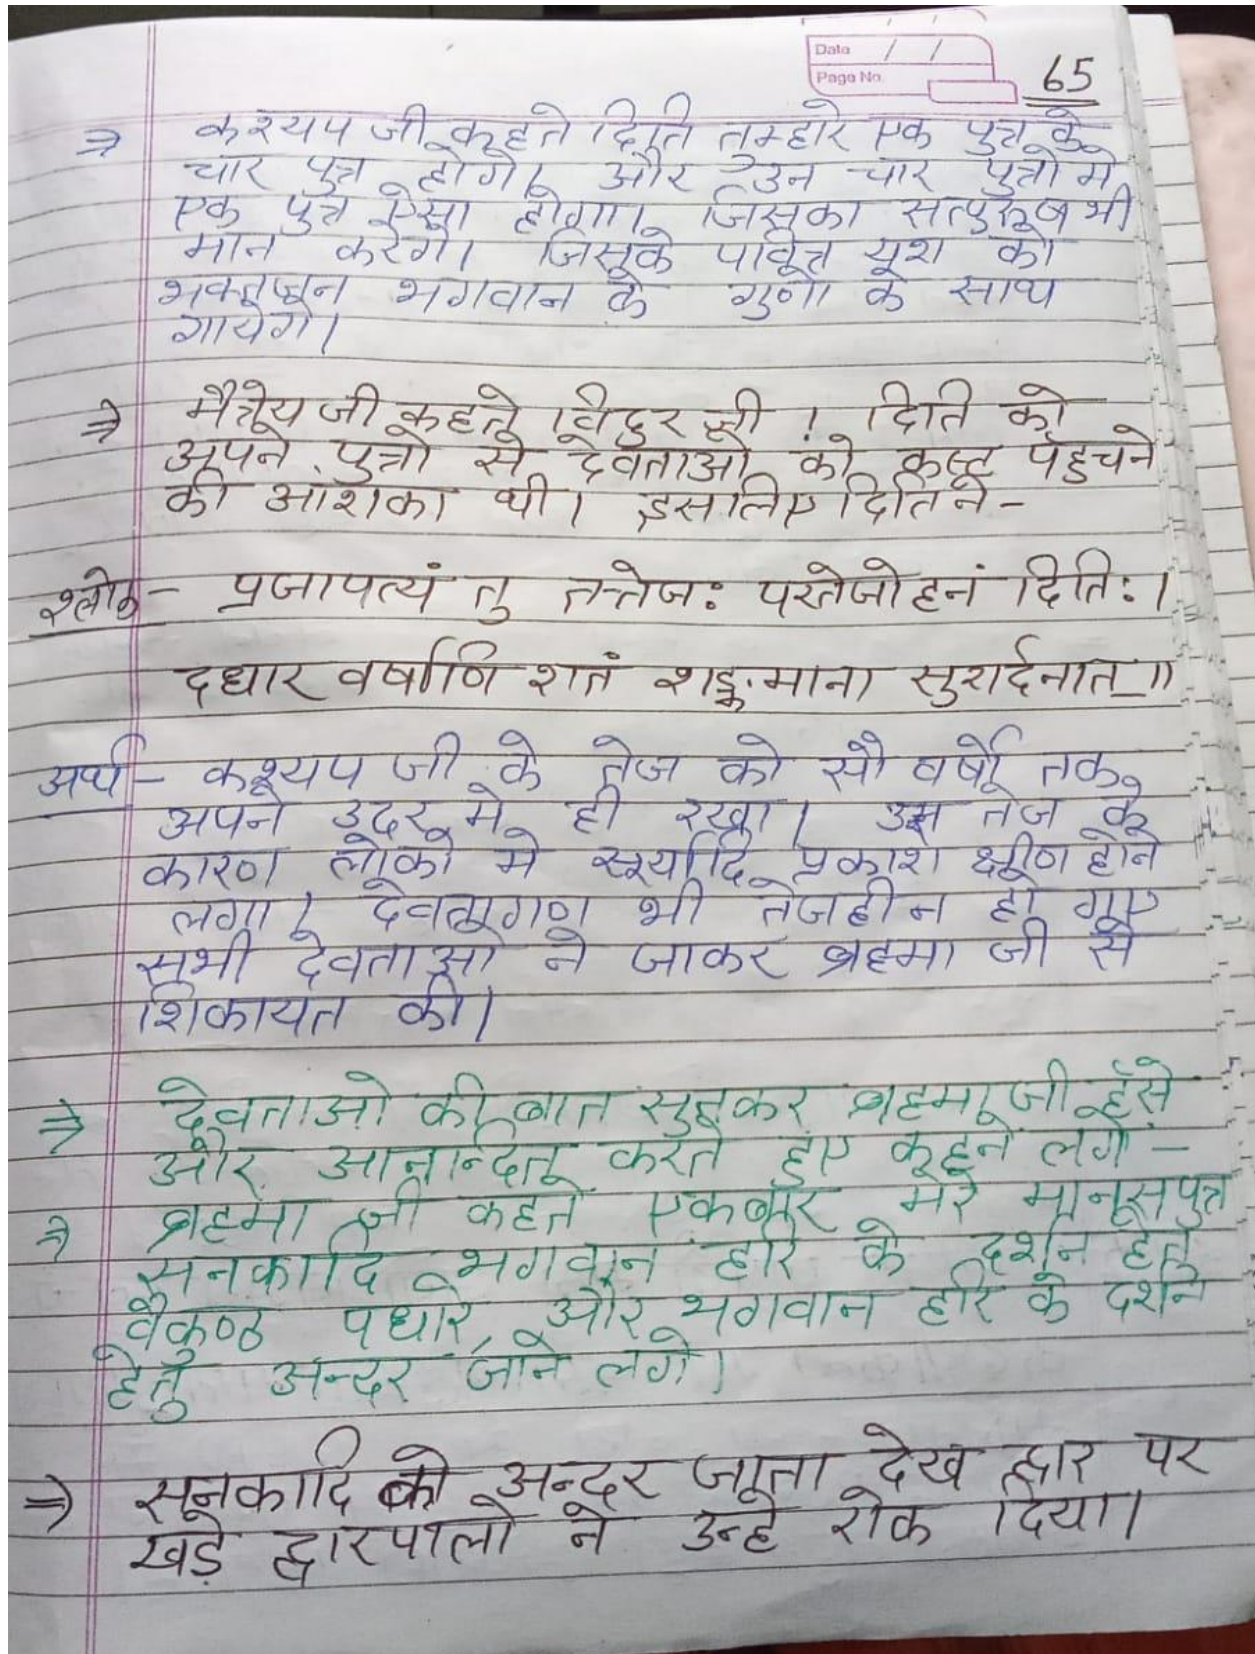 Date / /
Page No.
65
⇒ कश्यप जी कहते दिति तुम्हारे एक पुत्र के
चार पुत्र होगे, और उन चार पुत्रो मे
एक पुत्र ऐसा होगा। जिसका सत्पुरूष भी
मान करेगे। जिसके पवित्र यश को
भक्तजन भगवान के गुणो के साथ
गायेगे।
⇒ मैत्रेय जी कहते विदुर जी ! दिति को
अपने पुत्रो से देवताओ को कष्ट पँहुचने
की आशंका थी। इसलिए दिति ने-
श्लोक- प्रजापत्यं तु तत्तेजः परतेजोहनं दितिः।
दधार वर्षाणि शतं शङ्कमाना सुरार्दनात् ॥
अर्थ- कश्यप जी के तेज को सौ वर्षो तक
अपने उदर मे ही रखा। उस तेज के
कारण लोको मे सूर्यादि प्रकाश क्षीण होने
लगा, देवतागण भी तेजहीन हो गए
सभी देवताओ ने जाकर ब्रहमा जी से
शिकायत की।
⇒ देवताओ की बात सुनकर ब्रहमा जी हँसे
और आनन्दित करते हुए कहने लगे -
⇒ ब्रहमा जी कहते एकबार मेरे मानसपुत्र
सनकादि भगवान हरि के दर्शन हेतु
वैकुण्ठ पधारे, और भगवान हरि के दर्शन
हेतु अन्दर जाने लगे।
⇒ सनकादि को अन्दर जाता देख द्वार पर
खड़े द्वारपालो ने उन्हे रोक दिया।